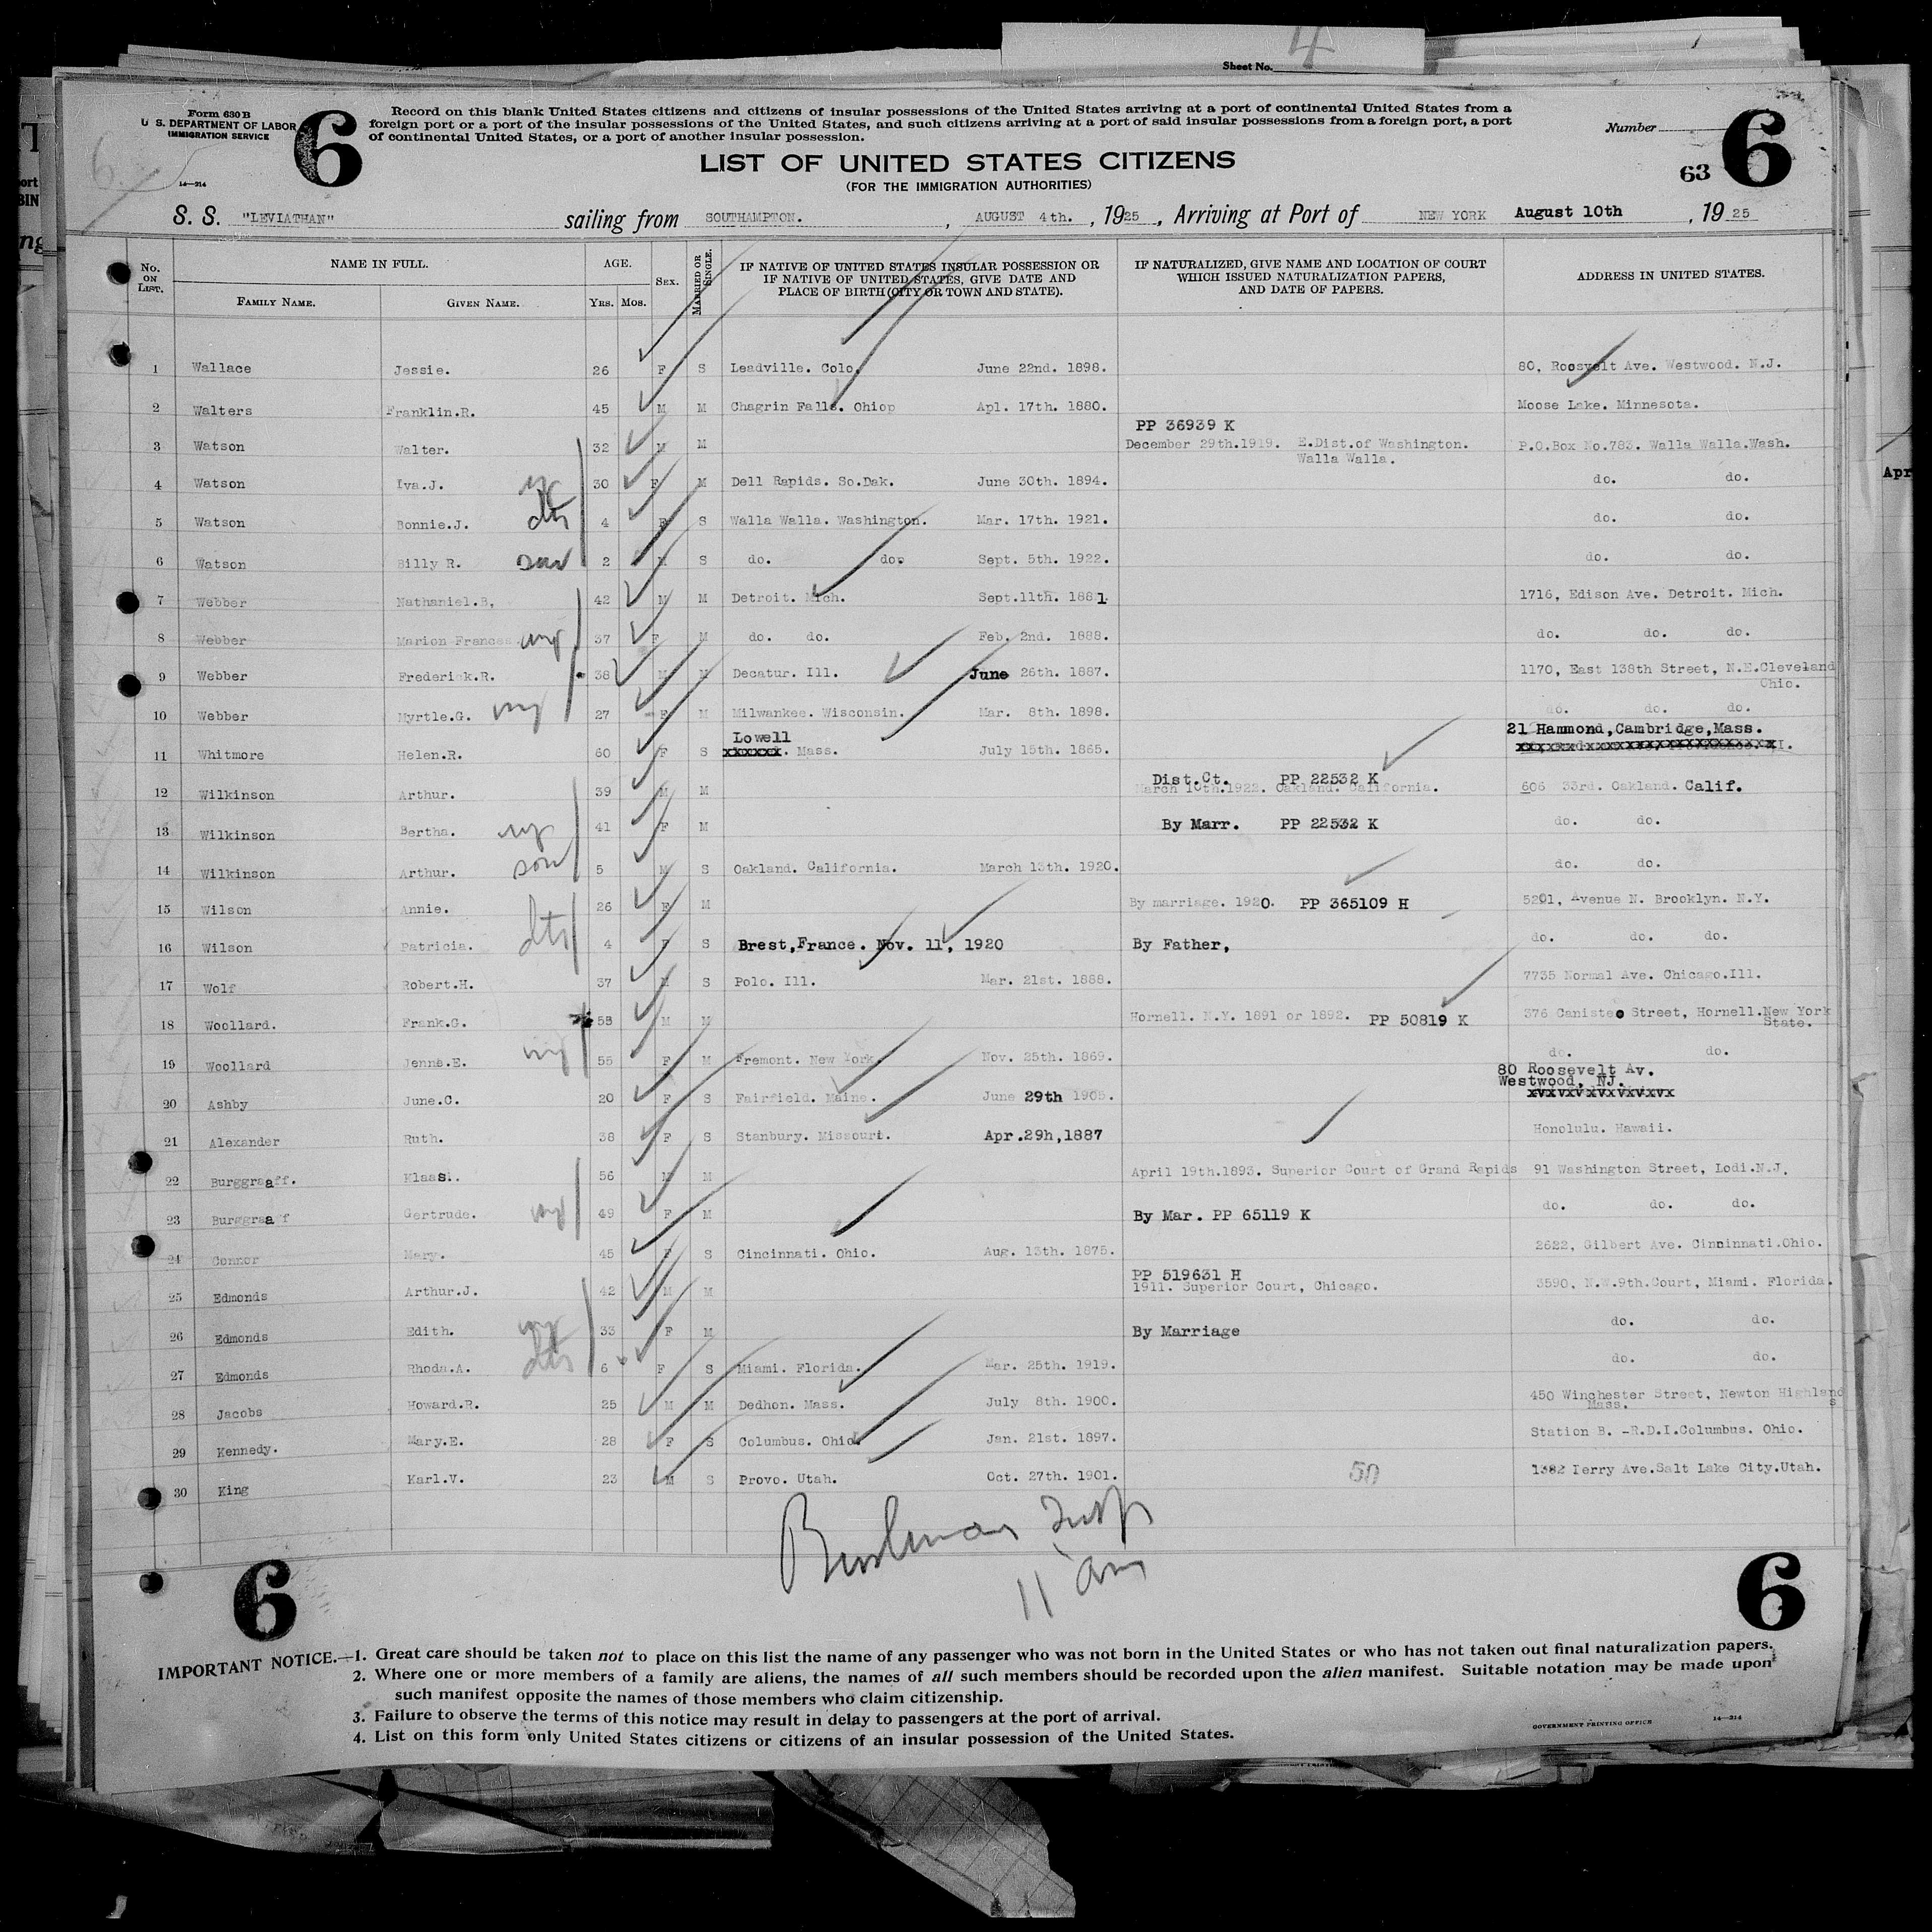 4
Sheet No.
Form 630 B
U. S. DEPARTMENT OF LABOR
IMMIGRATION SERVICE
14—214
6
Record on this blank United States citizens and citizens of insular possessions of the United States arriving at a port of continental United States from a
foreign port or a port of the insular possessions of the United States, and such citizens arriving at a port of said insular possessions from a foreign port, a port
of continental United States, or a port of another insular possession.
Number
63 6
LIST OF UNITED STATES CITIZENS
(FOR THE IMMIGRATION AUTHORITIES)
S. S. "LEVIATHAN" sailing from SOUTHAMPTON. , AUGUST 4th. , 1925 , Arriving at Port of NEW YORK August 10th , 1925
No. ON LIST. NAME IN FULL. FAMILY NAME. GIVEN NAME. AGE. YRS. MOS. SEX. MARRIED OR SINGLE. IF NATIVE OF UNITED STATES INSULAR POSSESSION OR IF NATIVE OF UNITED STATES, GIVE DATE AND PLACE OF BIRTH (CITY OR TOWN AND STATE). IF NATURALIZED, GIVE NAME AND LOCATION OF COURT WHICH ISSUED NATURALIZATION PAPERS, AND DATE OF PAPERS. ADDRESS IN UNITED STATES.
1 Wallace Jessie. 26 F S Leadville. Colo. June 22nd. 1898. 80, Roosvelt Ave. Westwood. N.J.
2 Walters Franklin.R. 45 M M Chagrin Falls. Ohiop Apl. 17th. 1880. Moose Lake. Minnesota.
PP 36939 K
3 Watson Walter. 32 M M December 29th.1919. E.Dist.of Washington. P.O.Box No.783. Walla Walla.Wash.
Walla Walla.
4 Watson Iva.J. 30 F M Dell Rapids. So.Dak. June 30th. 1894. do. do.
5 Watson Bonnie.J. dtr 4 F S Walla Walla. Washington. Mar. 17th. 1921. do. do.
6 Watson Billy R. son 2 M S do. do. Sept. 5th. 1922. do. do.
7 Webber Nathaniel.B. 42 M M Detroit. Mich. Sept.11th. 1881 1716, Edison Ave. Detroit. Mich.
8 Webber Marion Frances 37 F M do. do. Feb. 2nd. 1888. do. do. do.
9 Webber Frederick.R. 38 M M Decatur. Ill. June 26th. 1887. 1170, East 138th Street, N.E.Cleveland
Ohio.
10 Webber Myrtle.G. 27 F M Milwankee. Wisconsin. Mar. 8th. 1898. do. do. do.
Lowell 21 Hammond,Cambridge,Mass.
11 Whitmore Helen.R. 60 F S xxxxxx. Mass. July 15th. 1865.
Dist.Ct. PP 22532 K
12 Wilkinson Arthur. 39 M M March 10th.1922. Oakland. California. 606 33rd. Oakland. Calif.
13 Wilkinson Bertha. 41 F M By Marr. PP 22532 K do. do.
14 Wilkinson Arthur. son 5 M S Oakland. California. March 13th. 1920. do. do.
15 Wilson Annie. 26 F M By marriage. 1920. PP 365109 H 5201, Avenue N. Brooklyn. N.Y.
16 Wilson Patricia. dtr 4 F S Brest,France. Nov. 11, 1920 By Father, do. do. do.
17 Wolf Robert.H. 37 M S Polo. Ill. Mar. 21st. 1888. 7735 Normal Ave. Chicago.Ill.
18 Woollard. Frank.G. 53 M M Hornell. N.Y. 1891 or 1892. PP 50819 K 376 Canisteo Street, Hornell.New York
State.
19 Woollard Jenne.E. 55 F M Fremont. New York. Nov. 25th. 1869. do. do.
80 Roosevelt Av.
Westwood, NJ.
20 Ashby June.C. 20 F S Fairfield. Maine. June 29th 1905. xvxvxvxvxvxvxvxvx
21 Alexander Ruth. 38 F S Stanbury. Missouri. Apr.29h,1887 Honolulu. Hawaii.
22 Burggraaff. Klaas. 56 M M April 19th.1893. Superior Court of Grand Rapids 91 Washington Street, Lodi.N.J.
23 Burggraaf Gertrude. 49 F M By Mar. PP 65119 K do. do. do.
24 Connor Mary. 45 F S Cincinnati. Ohio. Aug. 13th. 1875. 2622, Gilbert Ave. Cincinnati.Ohio.
PP 519631 H
25 Edmonds Arthur.J. 42 M M 1911. Superior Court, Chicago. 3590, N.W.9th.Court, Miami. Florida.
26 Edmonds Edith. 33 F M By Marriage do. do.
27 Edmonds Rhoda.A. dtr 6 F S Miami. Florida. Mar. 25th. 1919. do. do.
28 Jacobs Howard.R. 25 M M Dedhon. Mass. July 8th. 1900. 450 Winchester Street, Newton Highland
Mass. s
29 Kennedy. Mary.E. 28 F S Columbus. Ohio. Jan. 21st. 1897. Station B. -R.D.I.Columbus. Ohio.
30 King Karl.V. 23 M S Provo. Utah. Oct. 27th. 1901. 1382 Ierry Ave.Salt Lake City.Utah.
50
11 am
6 6
IMPORTANT NOTICE.—1. Great care should be taken not to place on this list the name of any passenger who was not born in the United States or who has not taken out final naturalization papers.
2. Where one or more members of a family are aliens, the names of all such members should be recorded upon the alien manifest. Suitable notation may be made upon
such manifest opposite the names of those members who claim citizenship.
3. Failure to observe the terms of this notice may result in delay to passengers at the port of arrival.
4. List on this form only United States citizens or citizens of an insular possession of the United States.
GOVERNMENT PRINTING OFFICE 14—214